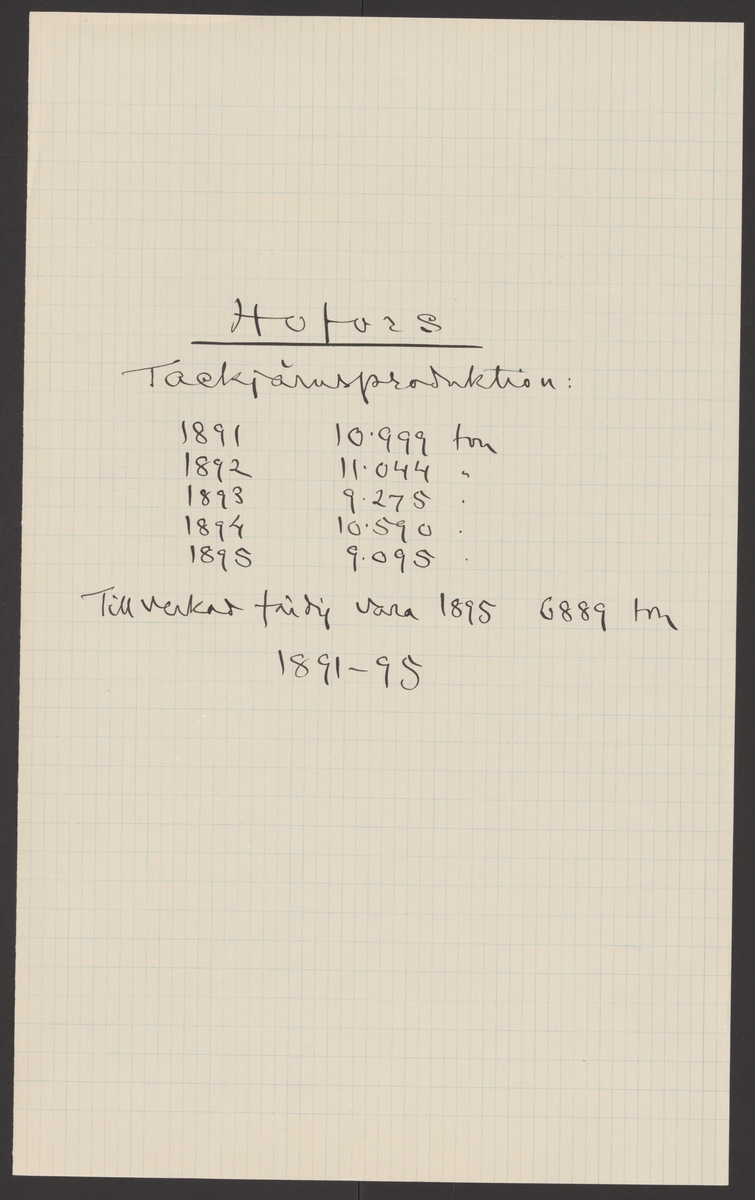 Hofors
Tackjärnsproduktion:
1891 10.999 ton
1892 11.044 "
1893 9.275 "
1894 10.590 "
1895 9.095 "
Tillverkad färdig vara 1895 6889 ton
1891-95